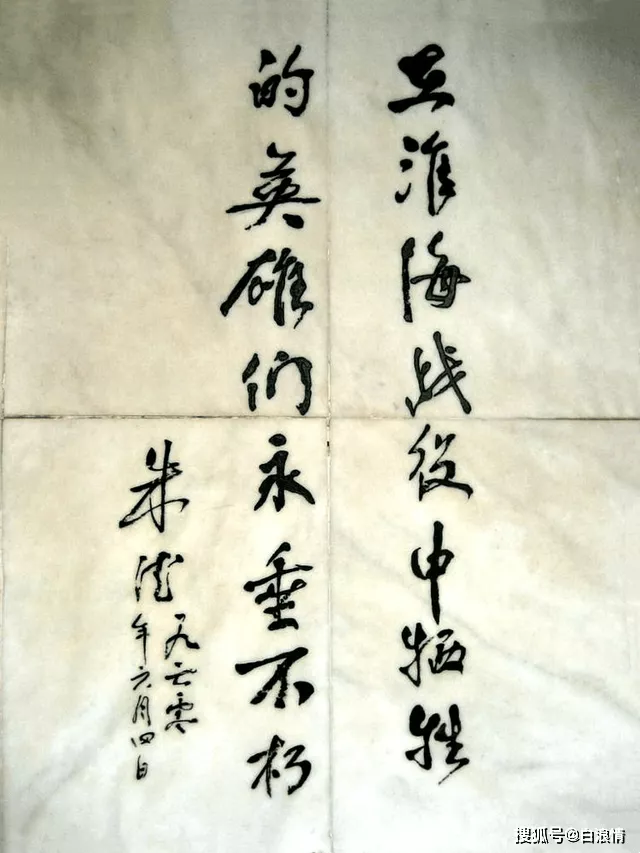 在淮海战役中牺牲
的英雄们永垂不朽
朱德 一九六零
年六月四日
搜狐号@白浪情